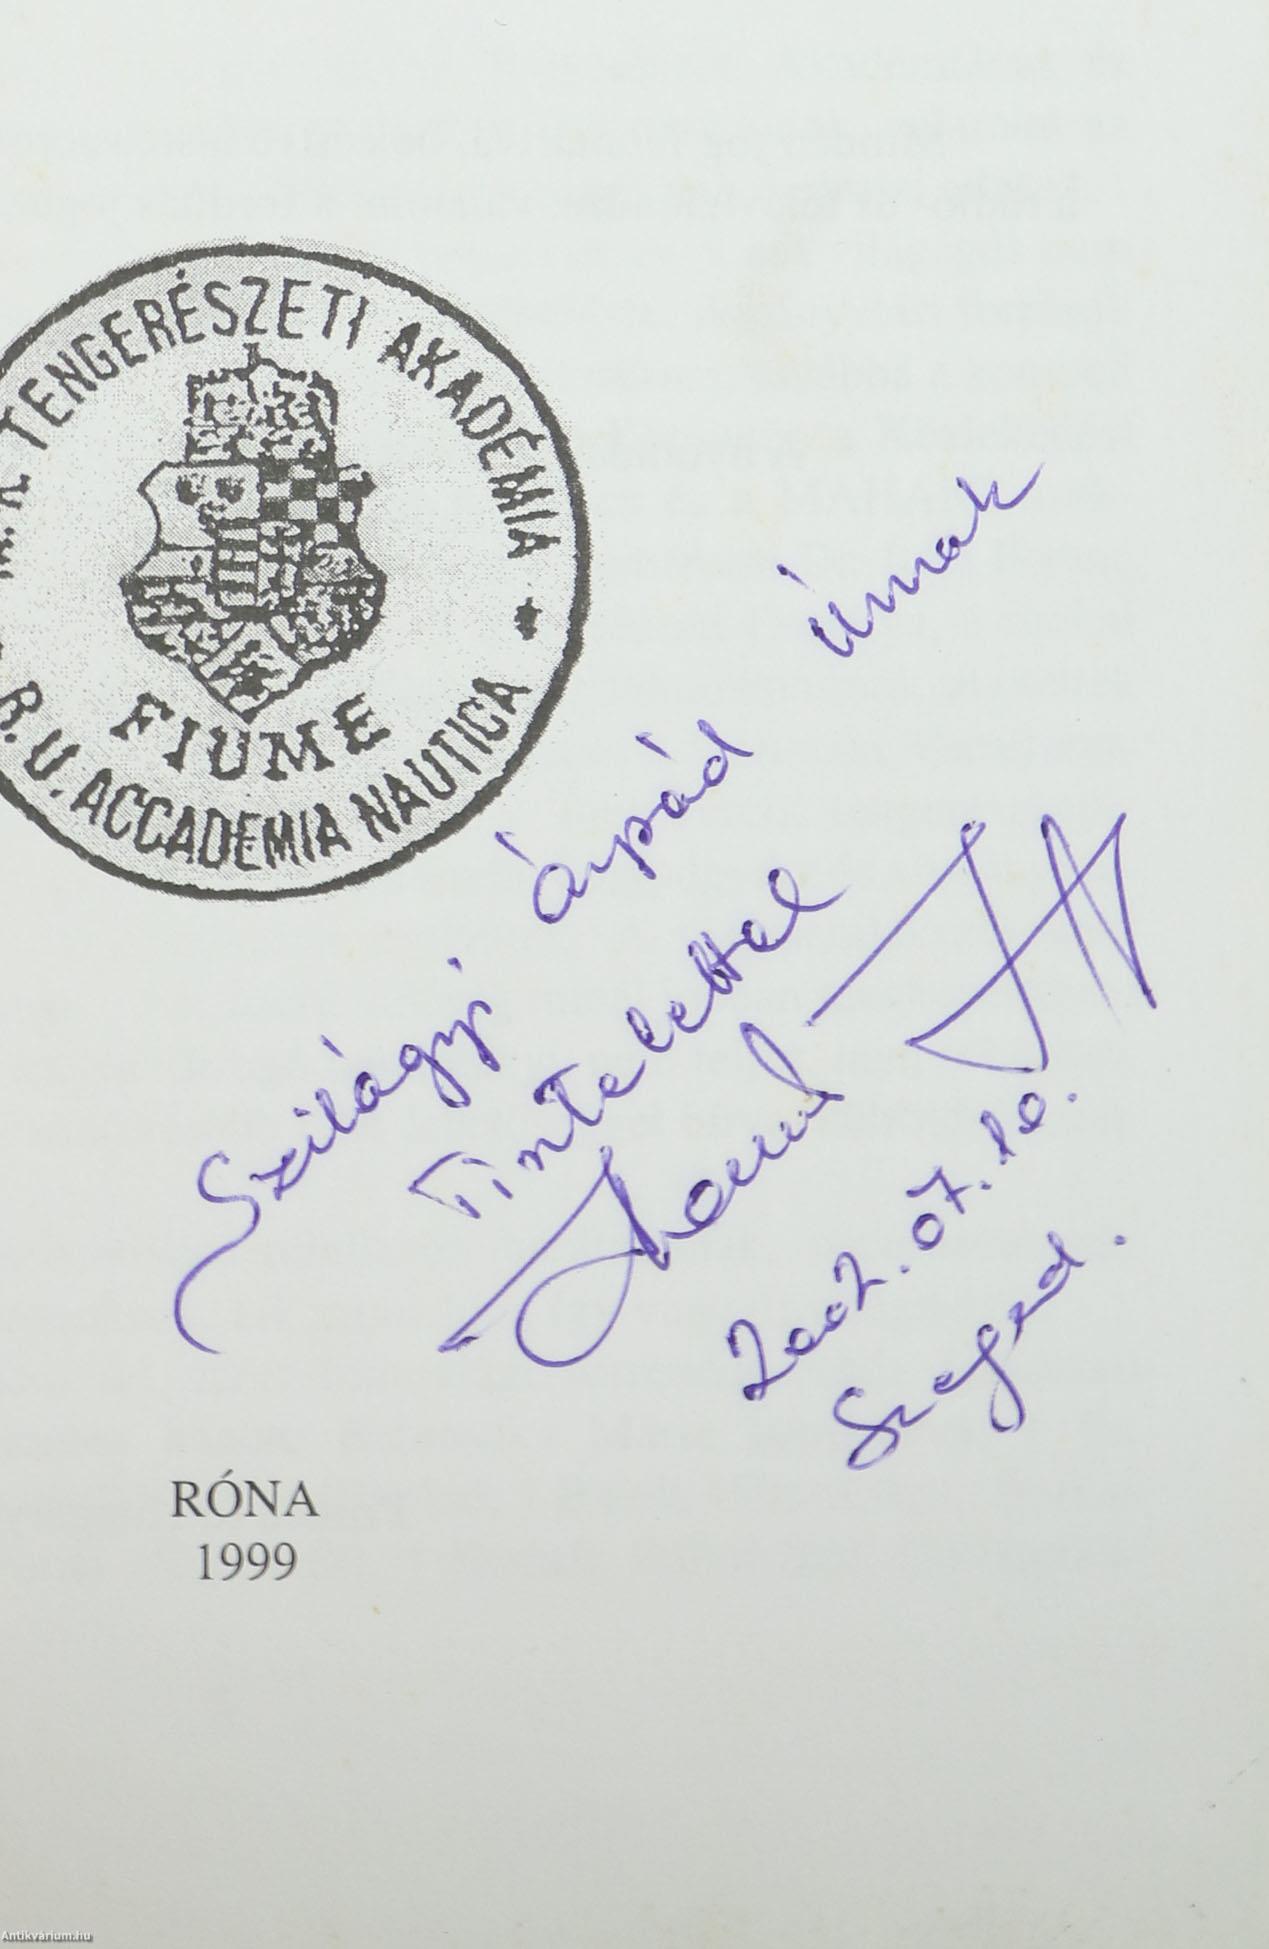 M. K. TENGERÉSZETI AKADÉMIA
R. U. ACCADEMIA NAUTICA
FIUME
Szilágyi Árpád Úrnak
Tisztelettel
2002.07.10.
Szeged.
RÓNA
1999
Antikvárium.hu